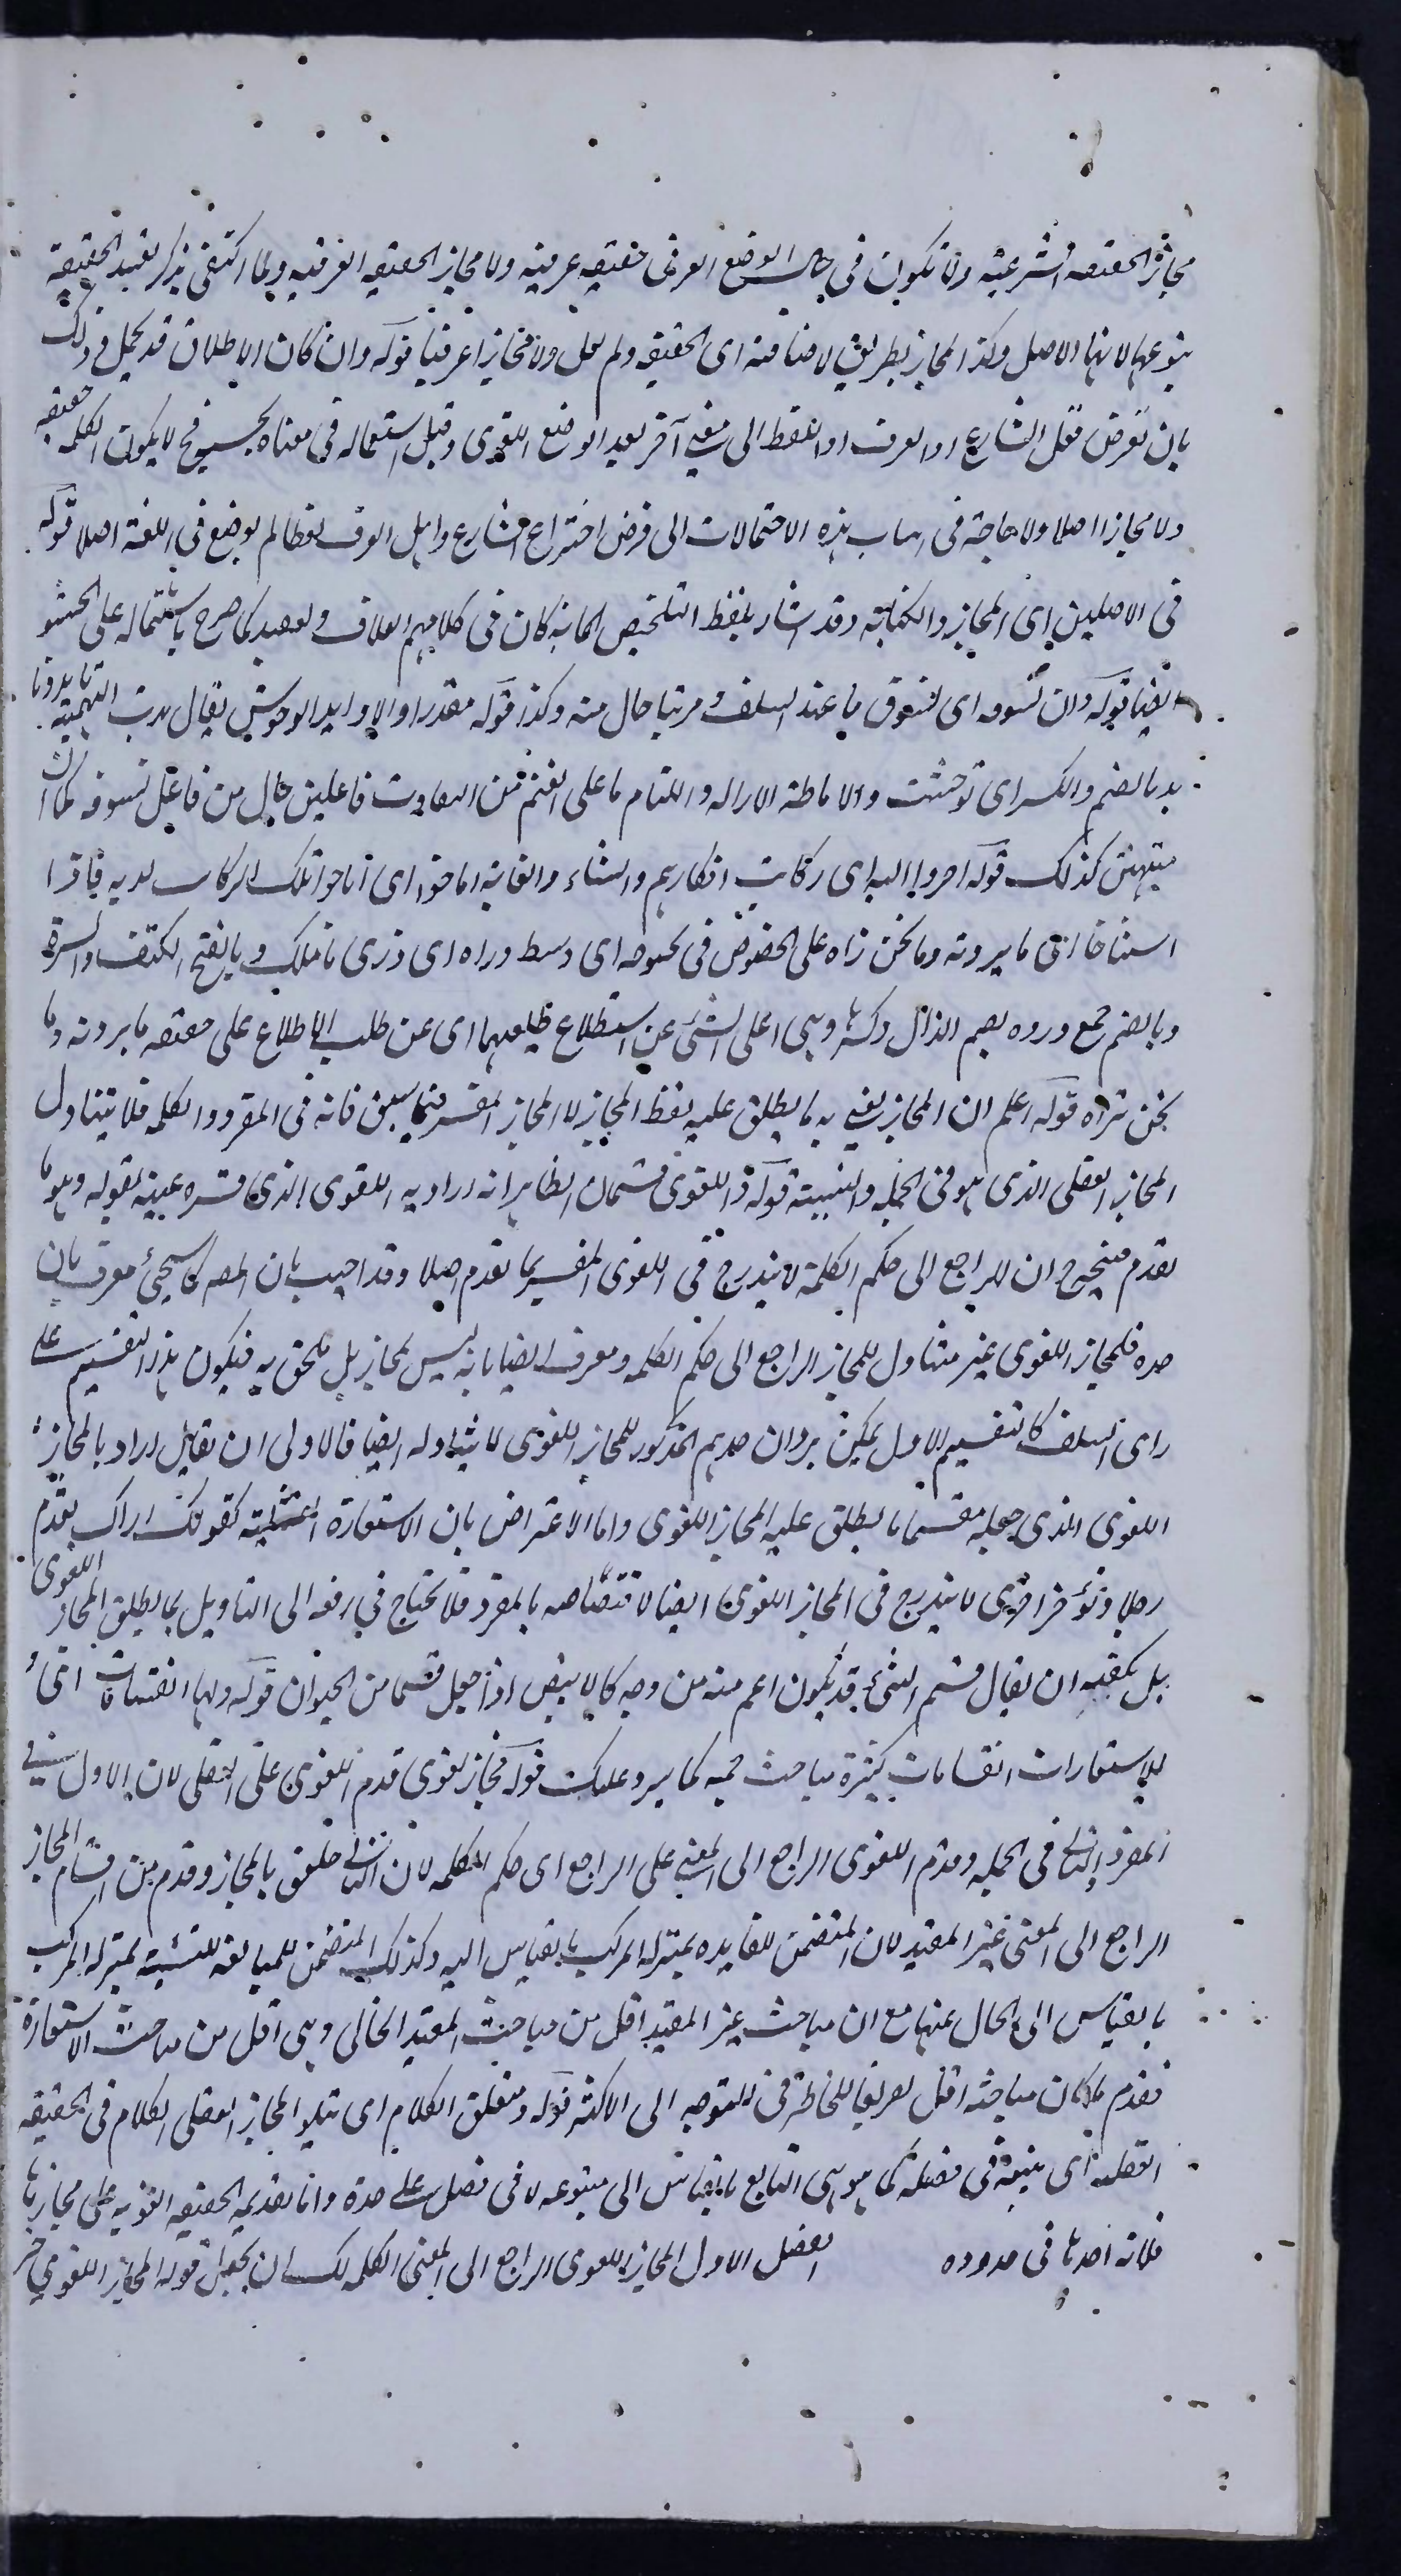 مجاز الحقيقة الشرعية ولا تكون في حال الوضع العرفي حقيقة عرفية ولا مجاز الحقيقة العرفية ولما اكتفى بذكر تقييد الحقيقة
بنوعها لانها الاصل وكذا المجاز بطريق الاضافة اى الحقيقة ولم يقل ولا مجازا عرفيا قوله وان كان الاطلاق قد يحمل في ذلك
بان تعرض نقل الشارع او العرف او اللفظ الى معنى آخر بعد الوضع اللغوى وقبل استعماله في معناه بحسبه فح لا يكون الكلمة حقيقة
ولا مجازا اصلا ولا حاجة في اثبات هذه الاحتمالات الى فرض اختراع الشارع واهل العرف لفظا لم يوضع في اللغة اصلا قوله
في الاصلين اى المجاز والكناية وقد اشار بلفظ التلخيص الى انه كان في كلامهم اغلاق وتعقيد كما صرح باشتماله على الحشو
ايضا قوله وان نسوقه اى لنسوق ما عند السلف ومرتبا حال منه وكذا قوله مقدرا والاوابد الوحوش يقال ابدت البهيمة تابد وتا
بد بالضم والكسر اى توحشت والاماطة الازالة واللثام ما على الفم من النقاب فاعلين حال من فاعل نسوقه كما ان
منبهين كذلك قوله اجروا اليه اى ركائب افكارهم والثناء والغاية اناخوا اى اناخوا تلك الركاب لديه فاذا
استأنفا انى ما يرونه وما نحن نراه على الخصوص في بحبوحه اى وسط ذراه اى ذرى ما تملك وهى بالفتح الكنف والسترة
وبالضم جمع ذروة بضم الذال وكسرها وهى اعلى الشئ عن استطلاع طلعيهما اى عن طلب الاطلاع على حقيقة ما يرونه وما
نحن نراه قوله اعلم ان المجاز يعنى به ما يطلق عليه لفظ المجاز لا المجاز المفسر فيما سبق فانه في المفرد والكلمة فلا يتناول
المجاز العقلى الذى هو في الجملة والنسبة قوله واللغوى قسمان الظاهر انه اراد به اللغوى الذى فسره عينه بقوله وهو ما
تقدم فيتجه ح ان الراجع الى حكم الكلمة لا يندرج في اللغوى المفسر بما تقدم اصلا وقد اجيب بان المص كما سيجئ معرف بان
حده للمجاز اللغوى غير متناول للمجاز الراجع الى حكم الكلمة ومعرف ايضا بانه ليس بمجاز بل ملحق به فيكون هذا التقسيم على
راى السلف كالتقسيم الاول لكن يرد ان حدهم المذكور للمجاز اللغوى لا يتناوله ايضا فالاولى ان يقال اراد بالمجاز
اللغوى الذى جعله مقسما ما يطلق عليه المجاز اللغوى واما الاعتراض بان الاستعارة التمثيلية كقولك اراك تقدم
رجلا وتؤخر اخرى لا يندرج في المجاز اللغوى ايضا لاختصاصه بالمفرد فلا يحتاج في رفعه الى التاويل بما يطلق المجاز اللغوى
بل يكفيه ان يقال قسم الشئ قد يكون اعم منه من وجه كالابيض اذا جعل قسما من الحيوان قوله ولها انقسامات اى
للاستعارات انقسامات كثيرة مباحث جمة كما سيرد عليك قوله مجاز لغوى قدم اللغوى على العقلى لان الاول في
المفرد والثانى في الجملة وقدم اللغوى الراجع الى المعنى على الراجع الى حكم الكلمة لان الثانى ملحق بالمجاز وقدم من اقسام المجاز
الراجع الى المعنى غير المفيد لان المتضمن للفايدة بمنزلة المركب بالقياس اليه وكذلك المتضمن للمبالغة للتشبيه بمنزلة المركب
بالقياس الى الخالى عنها مع ان مباحث غير المفيد اقل من مباحث المفيد الخالى وهى اقل من مباحث الاستعارة
فقدم ما كان مباحثه اقل تفريغا للخاطر في التوجه الى الاكثر قوله ويتعلق الكلام اى يتلو المجاز العقلى الكلام في الحقيقة
العقلية اى بتبعيته في فصله كما هو شان التابع بالقياس الى متبوعه لا في فصل على حدة واما تقديم الحقيقة اللغوية على مجازها
فلانه اخذها في حدوده الفصل الاول المجاز اللغوى الراجع الى المعنى الكلمة لك ان تجعل قوله المجاز اللغوى خبر